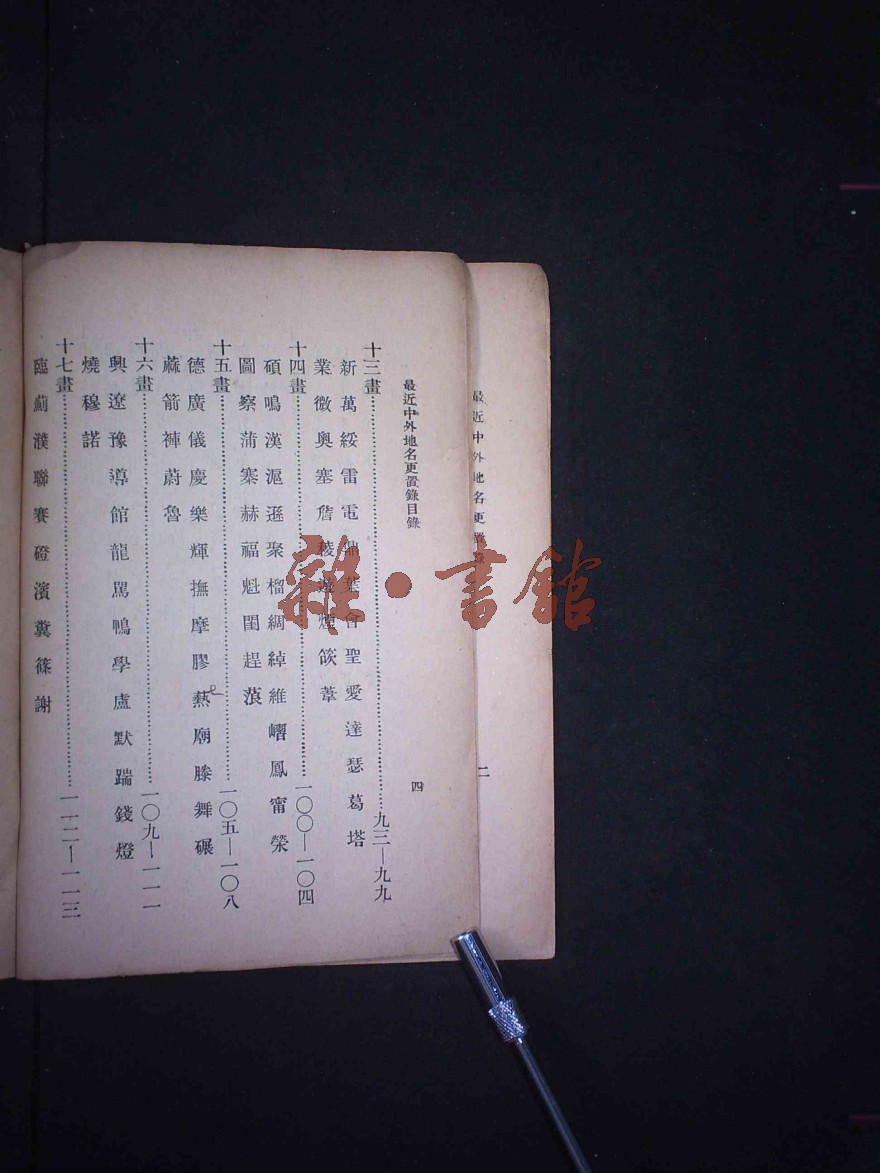 最近中外地名更置錄目錄
四
十三畫……九三—九九
新萬綏雷電鼎葉會聖愛達瑟葛塔
業微奧塞詹稜遊煙筬葦
十四畫……一〇〇—一〇四
碩鳴漢滬遜聚榴綢綽維嶍鳳甯榮
圖察蒲寨赫福魁閨趕蒗
十五畫……一〇五—一〇八
德廣儀慶樂輝撫摩膠熱廟滕舞碾
蔴箭褲蔚魯
十六畫……一〇九—一一一
興遼豫導館龍駡鴨學盧默踹錢燈
燒穆諾
十七畫……一一二—一一三
臨薊濮聯賽磴濱糞篠謝
最近中外地名更置
二
雜·書館